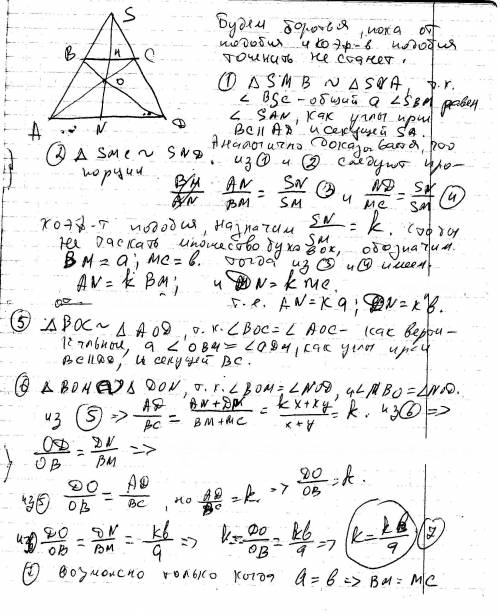 S
B
M
C
O
A
N
D
Будем бороться, пока от
подобия и коэф-в подобия
тошнить не станет.
① △SMB ~ △SNA, т.к.
∠BSC - общий а ∠SBM равен
∠SAN, как углы при
BC∥AD и секущей SA.
Аналогично доказывается, что
② △SMC ~ SND. из ① и ② следует про-
порции
AN/BM = SN/SM ③ и ND/MC = SN/SM ④
коэф-т подобия, назначим SN/SM = k. чтобы
не таскать множество букв, обозначим
BM = a; MC = b. тогда из ③ и ④ имеем.
AN = k BM; и DN = k MC.
т.е. AN = ka; DN = kb.
⑤ △BOC ~ △AOD, т.к. ∠BOC = ∠AOC - как верти-
кальные, а ∠OBM = ∠ODN, как углы при
BC∥AD, и секущей BC.
⑥ △BOM ~ △DON, т.к. ∠BOM = ∠NOD, а ∠MBO = ∠NOD.
из ⑤ => AD/BC = AN+DN/BM+MC = kx+ky/x+y = k. из ⑥ =>
OD/OB = DN/BM =>
из ⑤ DO/OB = AD/BC, но AD/BC = k. => DO/OB = k.
DO/OB = DN/BM = kb/a => k = DO/OB = kb/a => k = kb/a ⑦
⑦ возможно только когда a = b => BM = MC